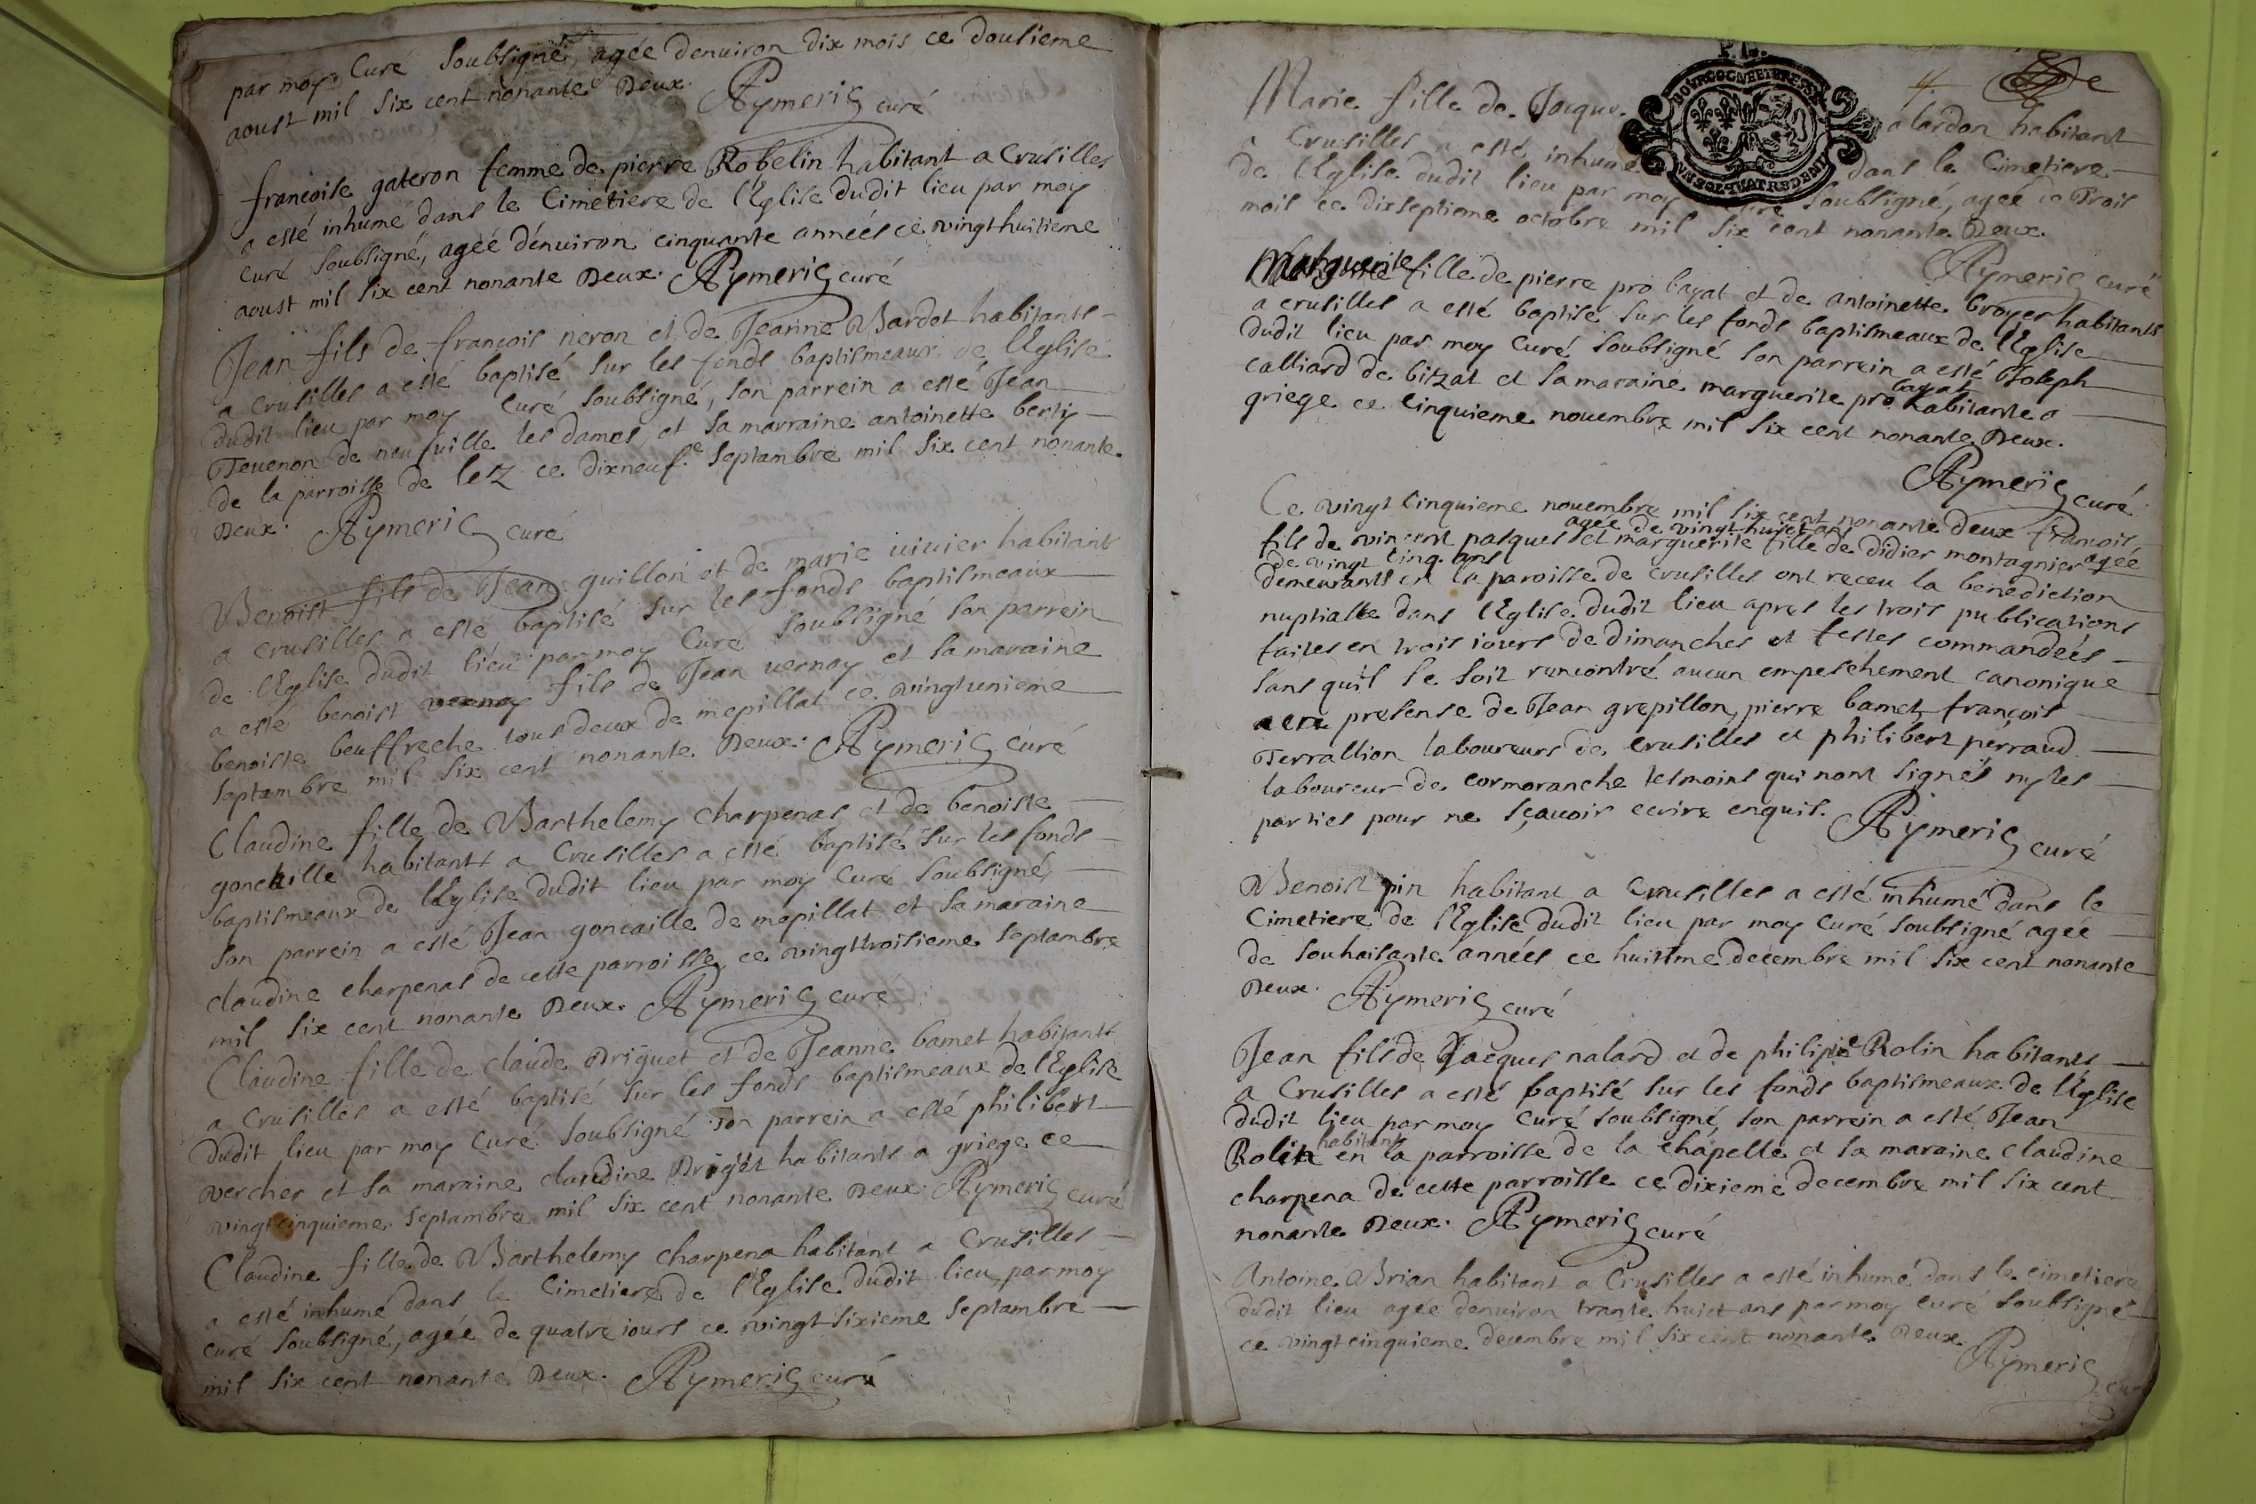 par moy Curé Soubsigné, agée denuiron dix mois ce dousieme
aoust mil six cent nonante Deux. Aymeric curé
françoise gateron femme de pierre Robelin habitant a Crusilles
a esté inhumé dans le Cimetiere de l'Eglise dudit lieu par moy
curé soubsigné, agée d'enuiron cinquante années ce vingthuitieme
aoust mil six cent nonante Deux. Aymeric curé
Jean fils de françois neron et de Jeanne Bardot habitants
a Crusilles a esté baptisé sur les fonds baptismeaux de l'Eglise
dudit lieu par moy Curé soubsigné, son parrein a esté Jean
Teuenon de neufuille les dames, et sa marraine antoinette
de la parroisse de lez ce dixneuf.e septambre mil six cent nonante
Deux. Aymeric curé
Benoist fils de Jean guillon et de marie viuier habitants
a crusilles a esté baptisé sur les fonds baptismeaux
de l'Eglise dudit lieu par moy Curé soubsigné son parrein
a esté benoist vernay fils de Jean vernay et sa maraine
benoiste beuffreche tous deux de mepillat ce vingtunieme
septambre mil six cent nonante Deux. Aymeric curé
Claudine fille de Barthelemy charpenas et de benoiste
goncaille habitantt a Crusilles a esté baptisé sur les fonds
baptismeaux de l'Eglise dudit lieu par moy Curé soubsigné,
son parrein a esté Jean goncaille de mepillat et sa maraine
claudine charpenas de cette parroisse, ce vingttroisieme septambre
mil six cent nonante Deux. Aymeric curé
Claudine fille de claude Driguet et de Jeanne bamet habitantt
a Crusilles a esté baptisé sur les fonds baptismeaux de l'Eglise
dudit lieu par moy Curé soubsigné son parrein a esté philibert
vercher et sa maraine claudine habitants a griege ce
vingtcinquieme septambre mil six cent nonante Deux. Aymeric curé
Claudine fille de Barthelemy charpena habitant a Crusilles
a esté inhumé dans le Cimetiere de l'Eglise dudit lieu par moy
curé soubsigné, agée de quatre iours ce vingtsixieme septambre
mil six cent nonante Deux. Aymeric curé
BOURGOGNE ET BRESSE
4
Marie fille de Jacque alardon habitant
a Crusilles a esté inhumé dans le Cimetiere
de l'Eglise dudit lieu par moy curé soubsigné, agée de trois
mois ce dixseptieme octobre mil six cent nonante Deux.
Aymeric curé
Marguerite fille de pierre pro bayat et de antoinette broyer habitants
a crusilles a esté baptisé sur les fonds baptismeaux de l'Eglise
dudit lieu par moy Curé soubsigné son parrein a esté Joseph
calliard de bitzat et sa maraine marguerite pro bayat habitante a
griege ce cinquieme nouembre mil six cent nonante Deux.
Aymeric curé
Ce vingt cinquieme nouembre mil six cent nonante deux françois
fils de vincent pasques agée de vingt huict ans et marguerite fille de didier montagnier agée
de vingt cinq ans
demeurants en la paroisse de crusilles ont receu la benediction
nuptialle dans l'Eglise dudit lieu apres les trois publications
faites en trois iours de dimanches et festes commandeés
sans qu'il se soit rencontré aucun empeschement canonique
presense de Jean grepillon, pierre bamet, françois
Terrallion laboureurs de crusilles et philibert perraud
laboureur de cormoranche tesmoins qui nont signés ny les
parties pour ne sçauoir ecrire enquis. Aymeric curé
Benoist pin habitant a Crusilles a esté inhumé dans le
Cimetiere de l'Eglise dudit lieu par moy Curé soubsigné agée
de souhaisante années ce decembre mil six cent nonante
Deux. Aymeric curé
Jean fils de Jacques nalard et de philipie Rolin habitants
a Crusilles a esté baptisé sur les fonds baptismeaux de l'Eglise
dudit lieu par moy Curé soubsigné, son parrein a esté Jean
Rolin habitant en la parroisse de la chapelle et sa maraine claudine
charpena de cette parroisse ce dixieme decembre mil six cent
nonante Deux. Aymeric curé
Antoine Brian habitant a Crusilles a esté inhumé dans le cimetiere
dudit lieu agée denuiron trante huict ans par moy curé soubsigné
ce vingtcinquieme decembre mil six cent nonante Deux.
Aymeric